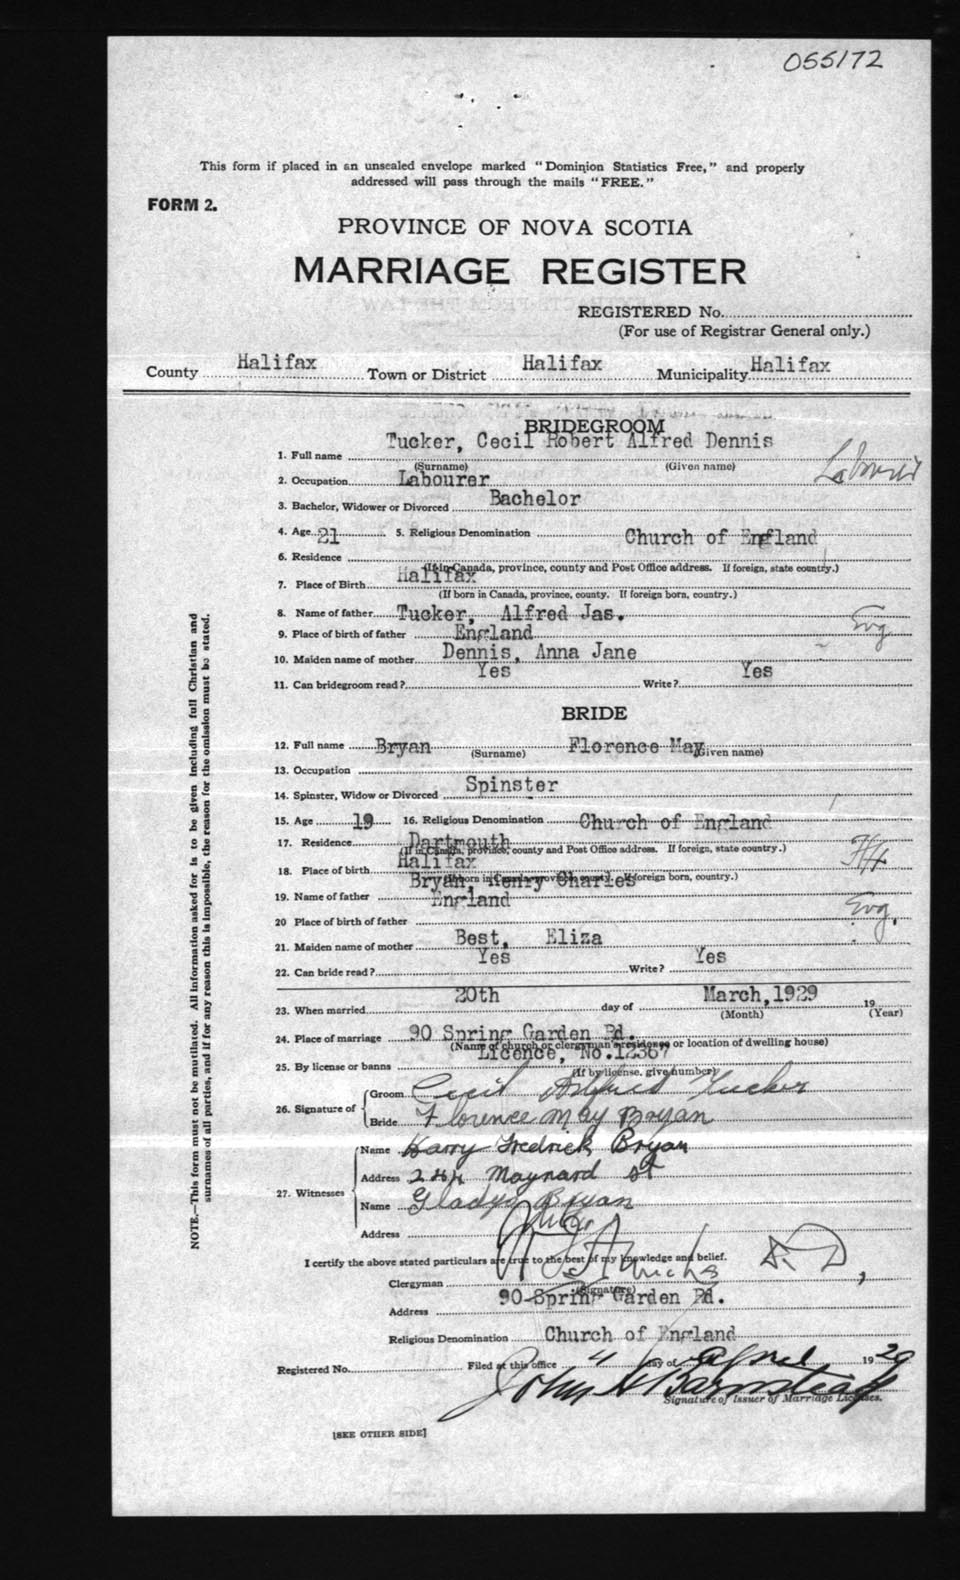 055172
This form if placed in an unsealed envelope marked "Dominion Statistics Free," and properly
addressed will pass through the mails "FREE."
FORM 2.
PROVINCE OF NOVA SCOTIA
MARRIAGE REGISTER
REGISTERED No.
(For use of Registrar General only.)
County Halifax Town or District Halifax Municipality Halifax
BRIDEGROOM
1. Full name Tucker, Cecil Robert Alfred Dennis
(Surname) (Given name)
2. Occupation Labourer Labourer
3. Bachelor, Widower or Divorced Bachelor
4. Age 21 5. Religious Denomination Church of England
6. Residence
(If in Canada, province, county and Post Office address. If foreign, state country.)
7. Place of Birth Halifax
(If born in Canada, province, county. If foreign born, country.)
8. Name of father Tucker, Alfred Jas.
9. Place of birth of father England Eng
10. Maiden name of mother Dennis, Anna Jane
11. Can bridegroom read? Yes Write? Yes
BRIDE
12. Full name Bryan Florence May
(Surname) (Given name)
13. Occupation
14. Spinster, Widow or Divorced Spinster
15. Age 19 16. Religious Denomination Church of England
17. Residence Dartmouth
(If in Canada, province, county and Post Office address. If foreign, state country.)
18. Place of birth Halifax Hfx
(If born in Canada, province, county. If foreign born, country.)
19. Name of father Bryan, Henry Charles
20 Place of birth of father England Eng.
21. Maiden name of mother Best, Eliza
22. Can bride read? Yes Write? Yes
23. When married 20th day of March, 1929 19
(Month) (Year)
24. Place of marriage 90 Spring Garden Rd.
(Name of church or clergyman's residence or location of dwelling house)
25. By license or banns Licence, No.12367
(If by license, give number)
26. Signature of Groom Cecil Alfred Tucker
Bride Florence May Bryan
27. Witnesses Name Harry Fredrick Bryan
Address 244 Maynard St
Name Gladys Bryan
Address
I certify the above stated particulars are true to the best of my knowledge and belief.
Clergyman
(Signature)
Address 90 Spring Garden Rd.
Religious Denomination Church of England
Registered No. Filed at this office 4 day of April 1929
John H Barnstead
Signature of Issuer of Marriage Licenses.
[SEE OTHER SIDE]
NOTE.—This form must not be mutilated. All information asked for is to be given including full Christian and
surnames of all parties, and if for any reason this is impossible, the reason for the omission must be stated.